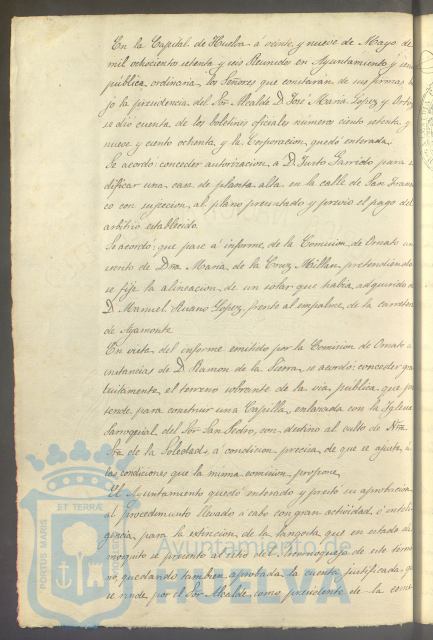 En la Capital de Huelva á veinte y nueve de Mayo de
mil ochocientos setenta y seis Reunidos en Ayuntamiento y
pública, ordinaria, los Señores que constarán de sus firmas
jo la presidencia del Sor Alcalde D. José Maria Lopez y
se dió cuenta de los boletines oficiales números ciento setenta y
nueve y ciento ochenta, y la Corporacion quedó enterada.
Se acordó: conceder autorizacion á D. Justo Garrido para
dificar una casa de planta alta en la calle de San
co con sujecion al plano presentado y previo el pago del
arbitrio establecido.
Se acordó: que pase á informe de la Comision de Ornato un
escrito de Dña Maria de la Cruz Millan, pretendiendo
se fije la alineacion de un solar que habia adquirido
D. Manuel Lopez, frente al empalme de la carretera
de Ayamonte
En vista del informe emitido por la Comision de Ornato á
instancias de D. Ramon de la Tierra, se acordó: conceder gra
tuitamente el terreno sobrante de la via pública que
tende para construir una Capilla, enlazada con la Iglesia
Parroquial del Sor San Pedro, con destino al culto de Ntra
Sra de la Soledad, á condicion precisa de que se ajuste á
las condiciones que la misma comision propone.
El Ayuntamiento quedó enterado y prestó su aprobacion
al procedimiento llevado á cabo con gran actividad é
gencia, para la estincion de la langosta que en estado de
mosquito se presentó al sitio del de este
no, quedando tambien aprobada la cuenta justificada,
se rinde, por el Sor Alcalde, como presidente de la
ET TERRÆ
PORTUS MARIS
Ayuntamiento de
HUELVA